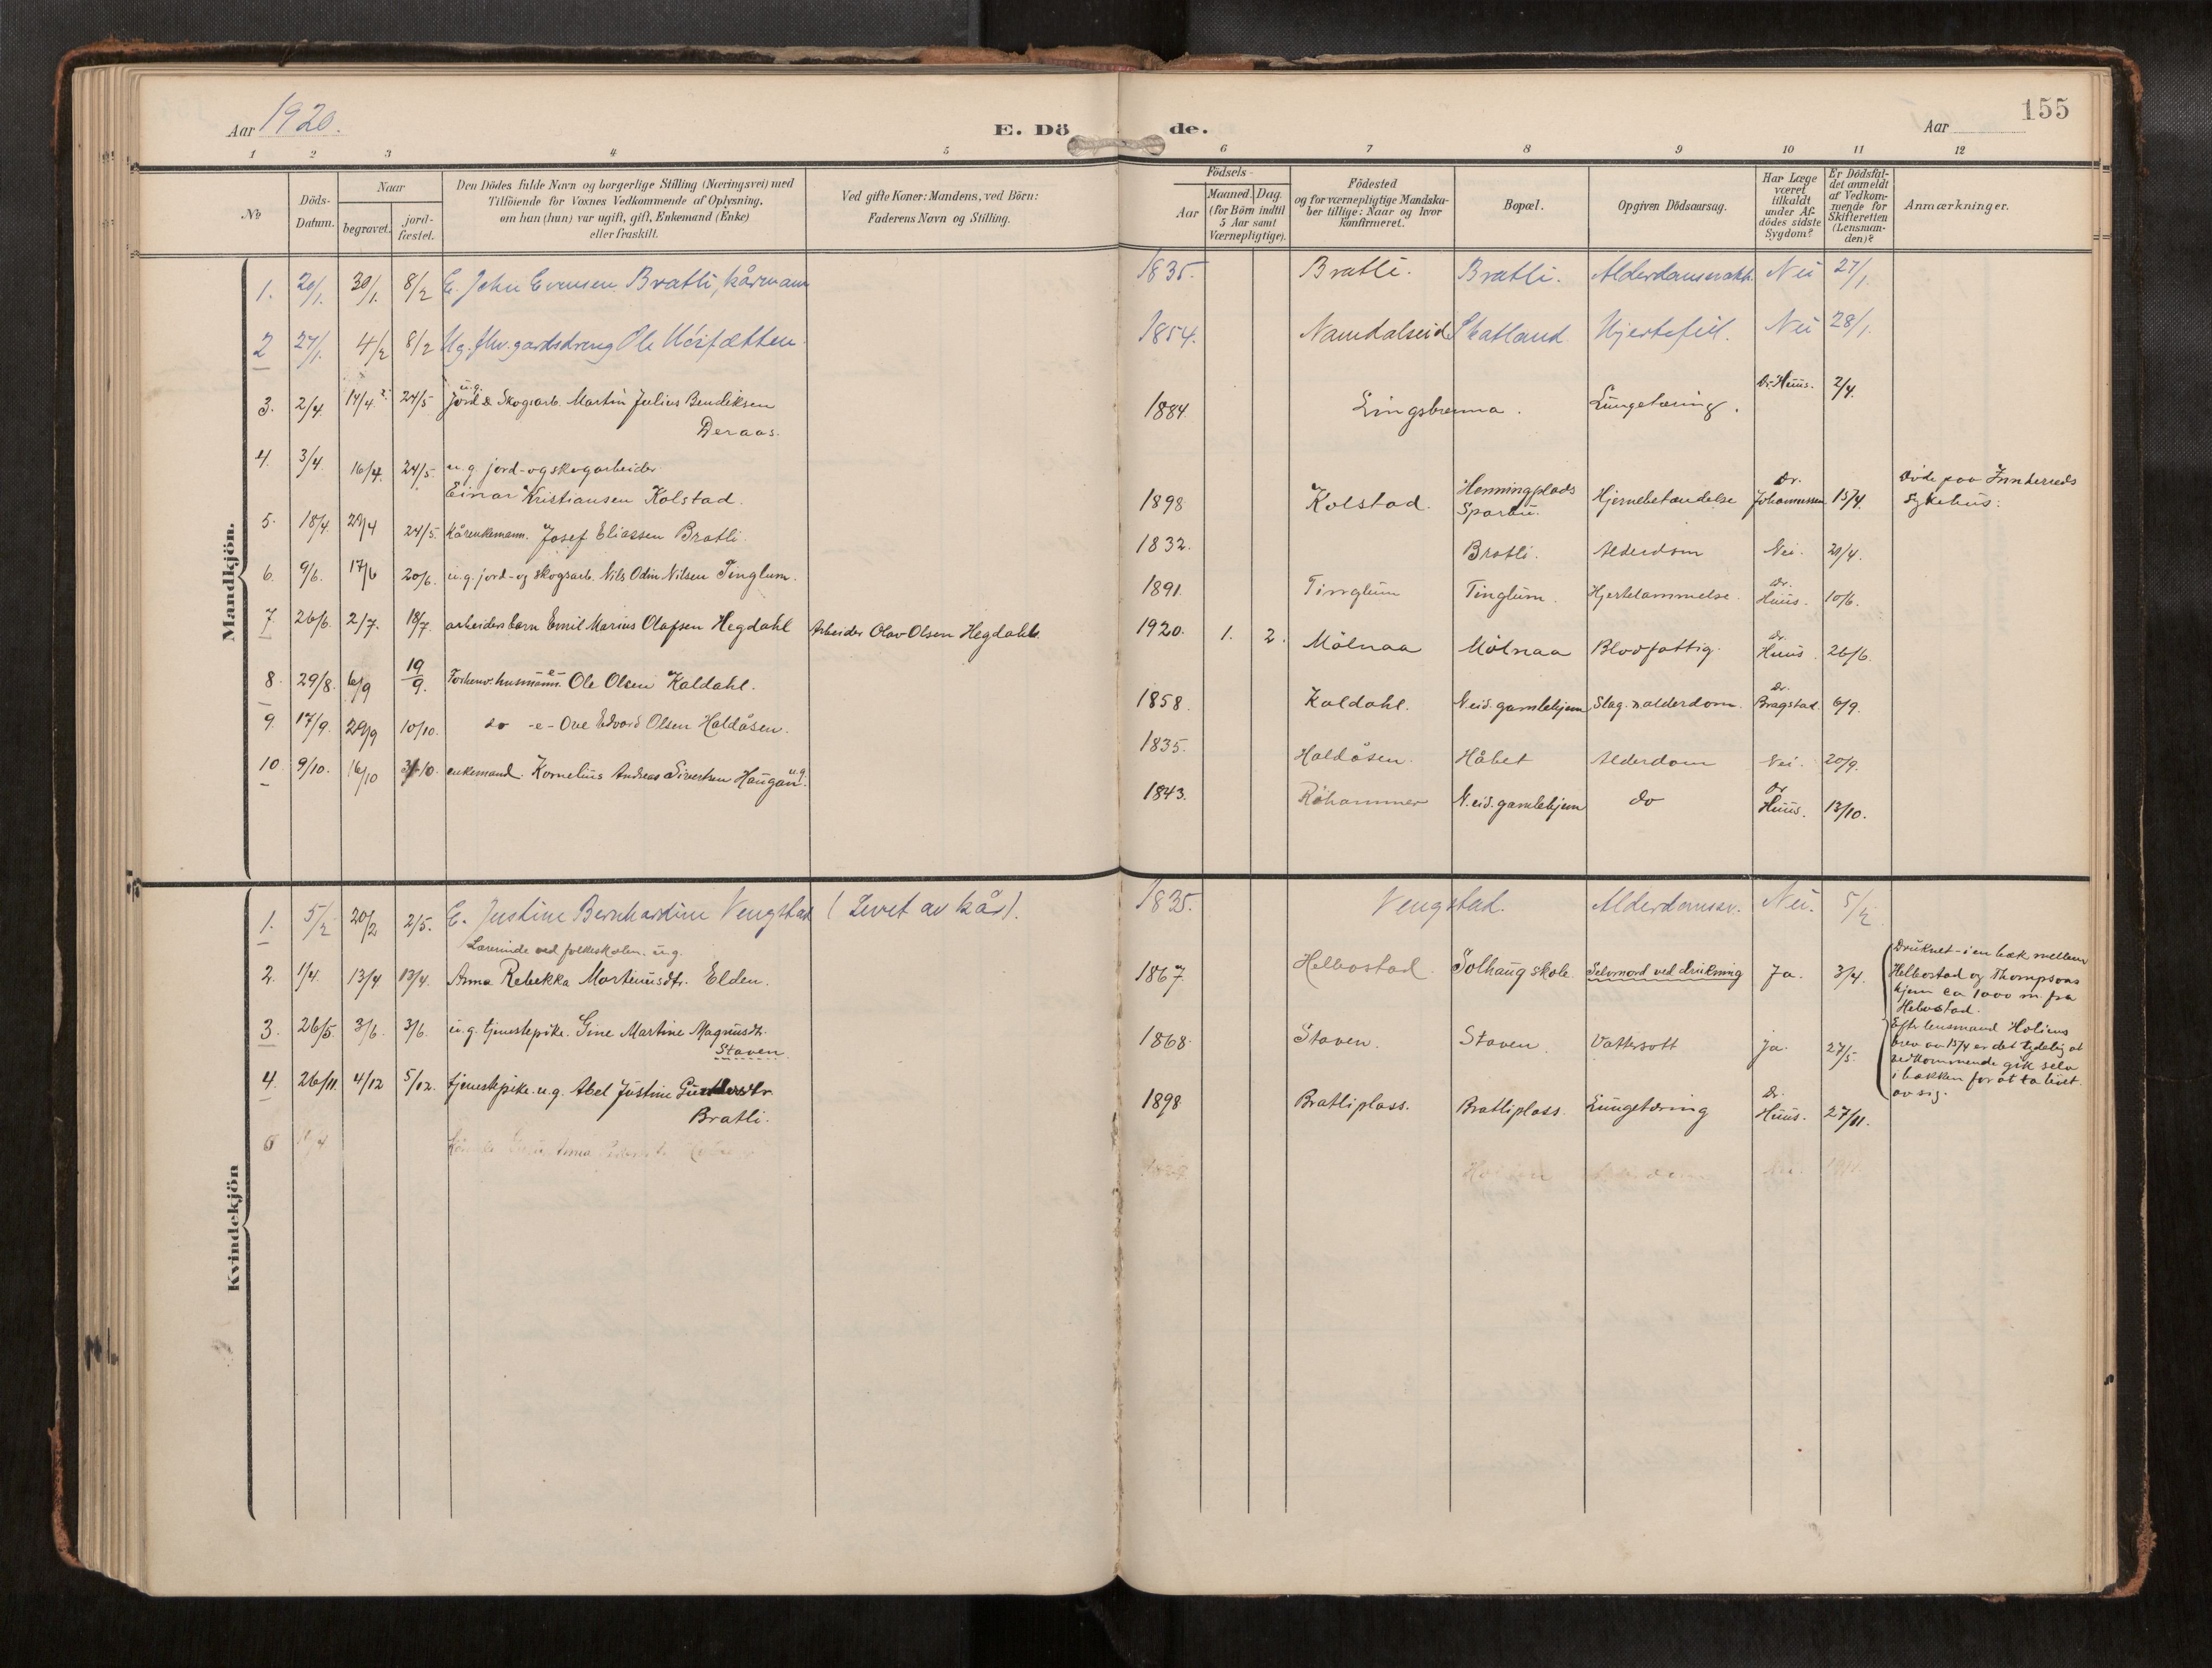 155
Aar 1920.
E. Dö de.
Aar
1 2 3 4 5 6 7 8 9 10 11 12
No
Döds-Datum.
Naar
begravet.
jord-fæstet.
Den Dödes fulde Navn og borgerlige Stilling (Næringsvei) med
Tilföiende for Voxnes Vedkommende af Oplysning,
om han (hun) var ugift, gift, Enkemand (Enke)
eller fraskilt.
Ved gifte Koner: Mandens, ved Börn:
Faderens Navn og Stilling.
Födsels-
Aar
Maaned. Dag.
(for Börn indtil
5 Aar samt
Værnepligtige).
Födested
og for værnepligtige Mandska-
ber tillige: Naar og hvor
konfirmeret.
Bopæl.
Opgiven Dödsaarsag.
Har Læge
været
tilkaldt
under Af-
dödes sidste
Sygdom?
Er Dödsfal-
det anmeldt
af Vedkom-
mende for
Skifteretten
(Lensman-
den)?
Anmærkninger.
Mandkjön.
1. 20/1. 30/1. 8/2 E. John Evensen Bratli, kårmann 1835. Bratli. Bratli. Nei 27/1.
2 27/1. 4/2 8/2 Ug. gardsdreng Ole 1854. Namdalseid Hjertefeil. Nei 28/1.
3. 2/4. 14/4 24/5 u.g. jord & Skogsarb. Martin Julius Bendiksen 1884. Lungetæring. Dr. Huus. 2/4.
Deraas.
4. 3/4. 16/4. 24/5. u.g. jord- og skogarbeider
Einar Kristiansen Kolstad. 1898 Kolstad. Henningplads Sparbu. Hjernebetændelse Dr. Johannessen 15/4. Döde paa Innherreds Sykehus.
5. 18/4. 29/4 24/5. Kårenkemann. Josef Eliassen Bratli. 1832. Bratli. Alderdom Nei. 29/4.
6. 9/6. 17/6 20/6. u.g. jord- og skogsarb. Nils Odin Nilsen Tinglum. 1891. Tinglum Tinglum. Hjertelammelse. Dr. Huus. 10/6.
7. 26/6. 2/7. 18/7. arbeidersbarn Emil Marius Olafsen Hegdahl Arbeider Olav Olsen Hegdahl. 1920. 1. 2. Mölnaa Mölnaa Blodfattig. Dr. Huus. 26/6.
8. 29/8. 6/9 19/9. Forhenv. husmann -e- Ole Olsen Kaldahl. 1858. Kaldahl. N.eid. gamlehjem Slag. & alderdom. Dr. Bragstad. 6/9.
9. 17/9. 29/9 10/10. do -e- Ove Edvard Olsen Haldåsen. 1835. Haldåsen. Håbet Alderdom Nei. 20/9.
10 9/10. 16/10 31-10. enkemand. Kornelius Andreas Sivertsen Haugan u.g. 1843. Röhammer N.eid. gamlehjem do Dr Huus. 13/10.
Kvindekjön
1. 5/2 20/2 2/5. E. Justine Bernhardine Vengstad (Levet av kår). 1835. Vengstad. Alderdomssv. Nei. 5/2
2. 1/4. 13/4 13/4. Lærerinde ved folkeskolen. u.g.
Anna Rebekka Martinusdtr. Elden. 1867. Helbostad Solhaug skole Selvmord ved drukning Ja. 3/4.
Druknet - i en bæk mellem
Helbostad og Thompsons
hjem ca 1000 m. fra
Helbostad.
Efter lensmand Holiens
brev av 15/4 er det tydelig at
vedkommende gik selv
i bækken for at ta livet
av sig.
3. 26/5. 3/6. 3/6. u.g. tjenestepike. Gine Martine Magnusdt.
Staven. 1868. Staven. Staven. Vattersott Ja. 27/5.
4. 26/11 4/12 5/12. tjenestepike. u.g. Abel Justine
Bratli. 1898 Bratliplass. Bratliplass. Lungetæring Dr. Huus. 27/11.